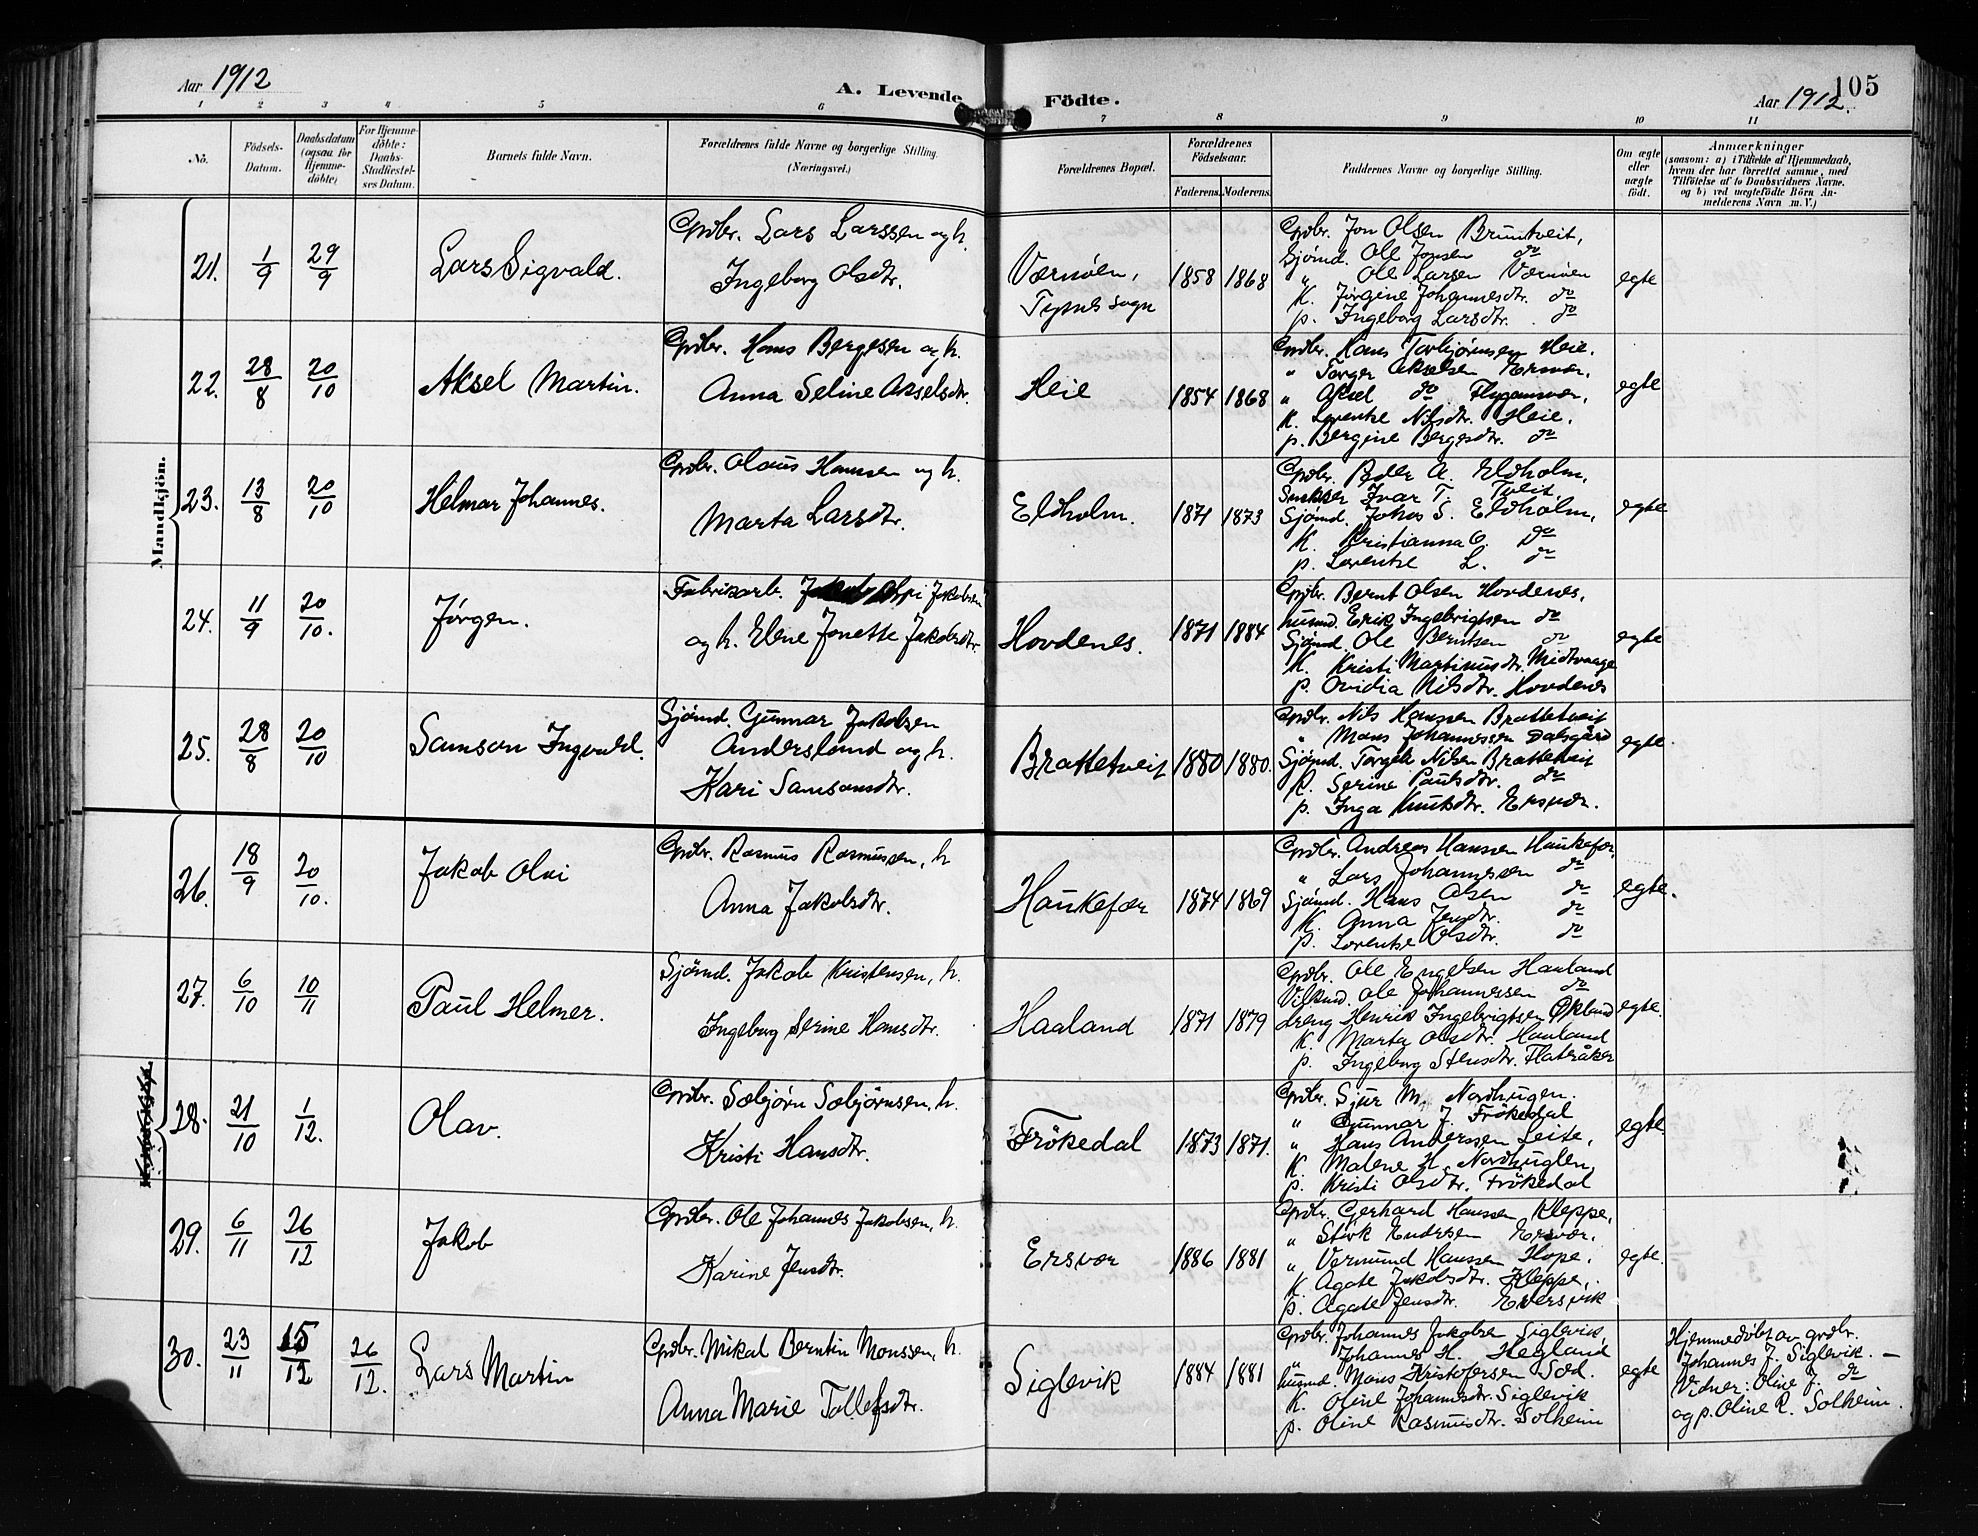 Aar 1912
A. Levende Födte.
Aar 1912.
105
1 2 3 4 5 6 7 8 9 10 11
No.
Födsels-Datum.
Daabsdatum (ogsaa for Hjemme-döbte)
For Hjemme-döbte: Daabs-Stadfæstel-ses Datum.
Barnets fulde Navn.
Forældrenes fulde Navne og borgerlige Stilling.
(Næringsvei.)
Forældrenes Bopæl.
Forældrenes Födselsaar.
Faderens. Moderens.
Faddernes Navne og borgerlige Stilling.
Om ægte eller uægte födt.
Anmærkninger
(saasom: a) i Tilfælde af Hjemmedaab,
hvem der har forrettet samme, med
Tilföielse af to Daabsvidners Navne.
og b) ved uægtefödte Börn An-
melderens Navn m. V.)
Mandkjön.
21. 1/9 29/9 Lars Sigvald.
Grdbr. Lars Larssen og h.
Ingeborg Olsdtr.
Værnöen,
Tysnes sogn
1858 1868
Grdbr. Jon Olsen Bruntveit,
Sjömd. Ole Jonsen do
" Ole Larsen Værnöen
K. Jørgine Johannesdtr. do
p. Ingeborg Larsdtr. do
egte
22. 28/8 20/10 Aksel Martin.
Grdbr. Hans Bergesen og h.
Anna Seline Akselsdtr.
Heie
1854 1868
Grdbr. Hans Torbjørnsen Heie.
" Torger Akselsen Ersvær,
" Aksel do Flygansvær,
K. Lorentse Nilsdtr. Heie.
p. Bergine Bergesdtr. do
egte
23. 13/8 20/10 Helmar Johannes.
Grdbr. Olaus Hansen og h.
Marta Larsdtr.
Eldholm.
1871 1873
Grdbr. Peder A. Eldholm,
Snekker Ivar T. Tveit
Sjömd. Johas S. Eldholm,
K. Kristianna O. do
p. Lorentse L. do
egte
24. 11/9 20/10. Jörgen.
Fabrikarb. Jakobsen
og h. Elene Jonette Jakobsdtr.
Hovdenes.
1871 1884
Grdbr. Bernt Olsen Hovdenes,
husmd. Erik Ingebrigtsen do
Sjömd. Ole Berntsen do
K. Kristi Martinusdtr. Midtvaage
p. Ovidia Nilsdtr. Hovdenes
egte
25. 28/8 20/10 Samson Ingvald.
Sjömd. Gunnar Jakobsen
Andersland og h.
Kari Samsonsdtr.
Brattetveit
1880 1880.
Grdbr. Nils Hanssen Brattetveit
" Mons Johannessen Dalsgård
Sjömd. Torgils Nilsen Brattetveit
K. Serine Paulsdtr. do
p. Inga Knutsdtr. Ersvær.
egte.
26. 18/9 20/10. Jakob Olai
Grdbr. Rasmus Rasmussen, h
Anna Jakobsdtr.
Haukefær
1874 1869
Grdbr. Andreas Hanssen Haukefær,
" Lars Johannessen do
Sjömd. Hans Olsen do
K. Anna Jensdtr. do
p. Lorentse Olsdtr. do
egte.
27. 6/10 10/11 Paul Helmer.
Sjömd. Jakob Kristensen, h.
Ingeborg Serine Hansdtr.
Haaland
1871 1879
Grdbr. Ole Engelsen Haaland
Ole Johannessen do
dreng Henrik Ingebrigtsen Økland
K. Marta Olsdtr. Haaland
p. Ingeborg Stensdtr. Flatråker
egte.
28. 21/10 1/12. Olav.
Grdbr. Sæbjørn Sæbjørnsen, h.
Kristi Hansdtr.
Frökedal
1873 1871.
Grdbr. Sjur M. Nordhuglen.
" Gunnar J. Frökedal
" Hans Anderssen Leite,
K. Malene H. Nordhuglen,
p. Kristi Olsdtr. Frökedal
egte.
29. 6/11 26/12 Jakob
Grdbr. Ole Johannes Jakobsen, h.
Karine Jensdtr.
Ersvær
1886 1881
Grdbr. Gerhard Hanssen Kleppe,
" Störk Endresen Ersvær,
" Vermund Hanssen Hope,
K. Agate Jakobsdtr. Kleppe,
p. Agate Jensdtr. Eversvik
egte.
30. 23/11 15/12 26/12. Lars Martin
Grdbr. Mikal Berntin Monssen, h.
Anna Marie Tollefsdtr.
Siglevik
1884 1881
Grdbr. Johannes Jakobsen Siglevik,
" Johannes H. Hegland
husmd. Mons Kristofersen Sæd.
K. Oline Johannesdtr. Siglevik
p. Oline Rasmusdtr. Solheim
egte
Hjemmedöbt av grdbr.
Johannes J. Siglevik. —
Vidner: Oline J. do
og p. Oline R. Solheim.